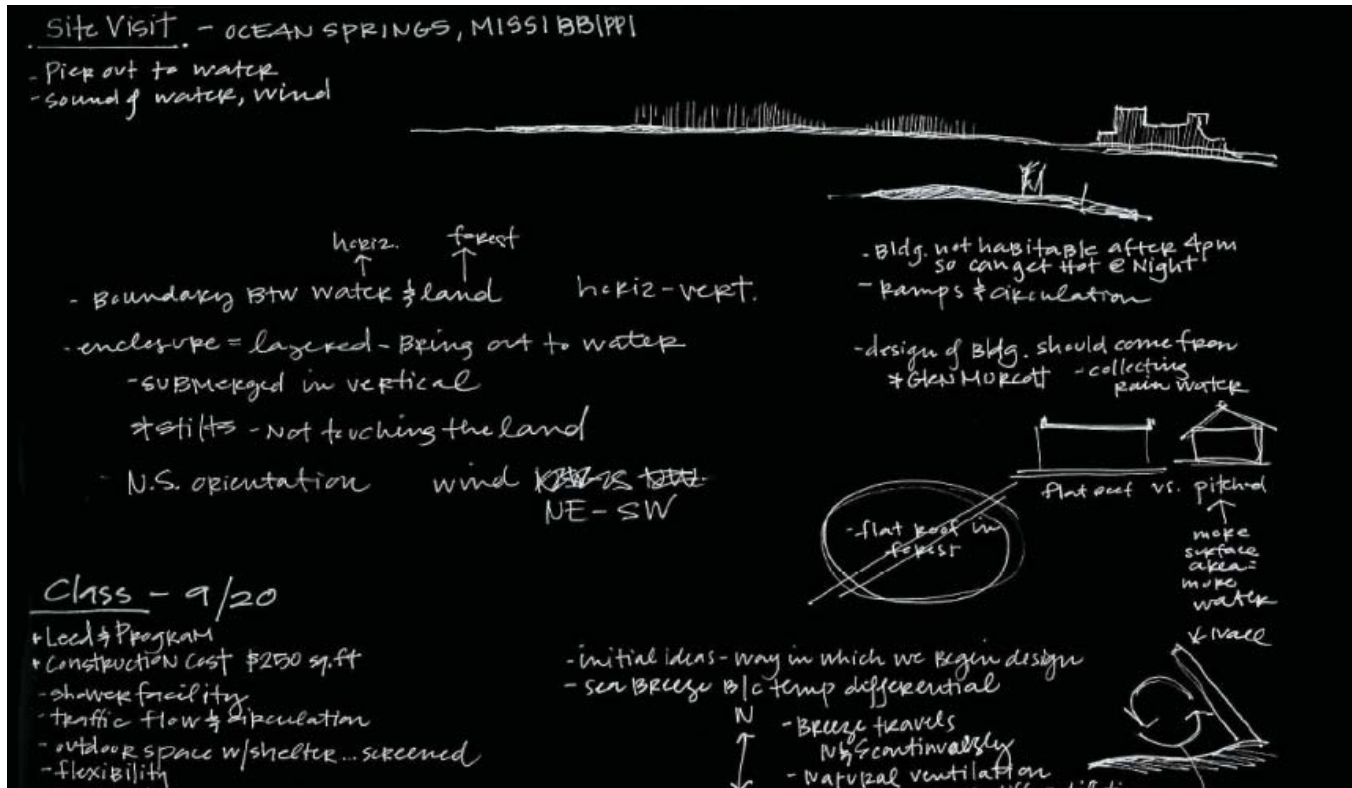 Site Visit - OCEAN SPRINGS, MISSISSIPPI
- Pier out to water
- sound of water, wind
horiz. forest
- Boundary BTW water & land horiz-vert.
- enclosure = layered - Bring out to water
- SUBMERGED in vertical
* stilts - Not touching the land
- N.S. orientation wind
NE - SW
- Bldg. not habitable after 4pm
so can get Hot @ Night
- Ramps & circulation
- design of Bldg. should come from
* Glen Murcott - collecting
rain water
flat roof vs. pitched
↑
more
surface
area =
more
water
- flat roof in
forest
Class - 9/20
* Leed & Program
* Construction Cost $250 sq.ft
- shower facility
- traffic flow & circulation
- outdoor space w/shelter... screened
- flexibility
- initial ideas - way in which we Begin design
- sea Breeze B/c temp differential
N
- Breeze travels
N & S continuously
- Natural ventilation
wall